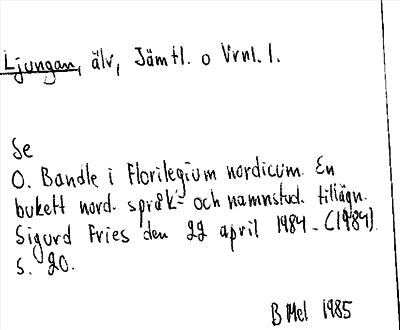 Ljungan, älv, Jämtl. o Vrnl. l.
Se
O. Bandle i Florilegium nordicum. En
bukett nord. språk- och namnstud. tillägn.
Sigurd Fries den 22 april 1984. (1984).
s. 20.
B Mel 1985